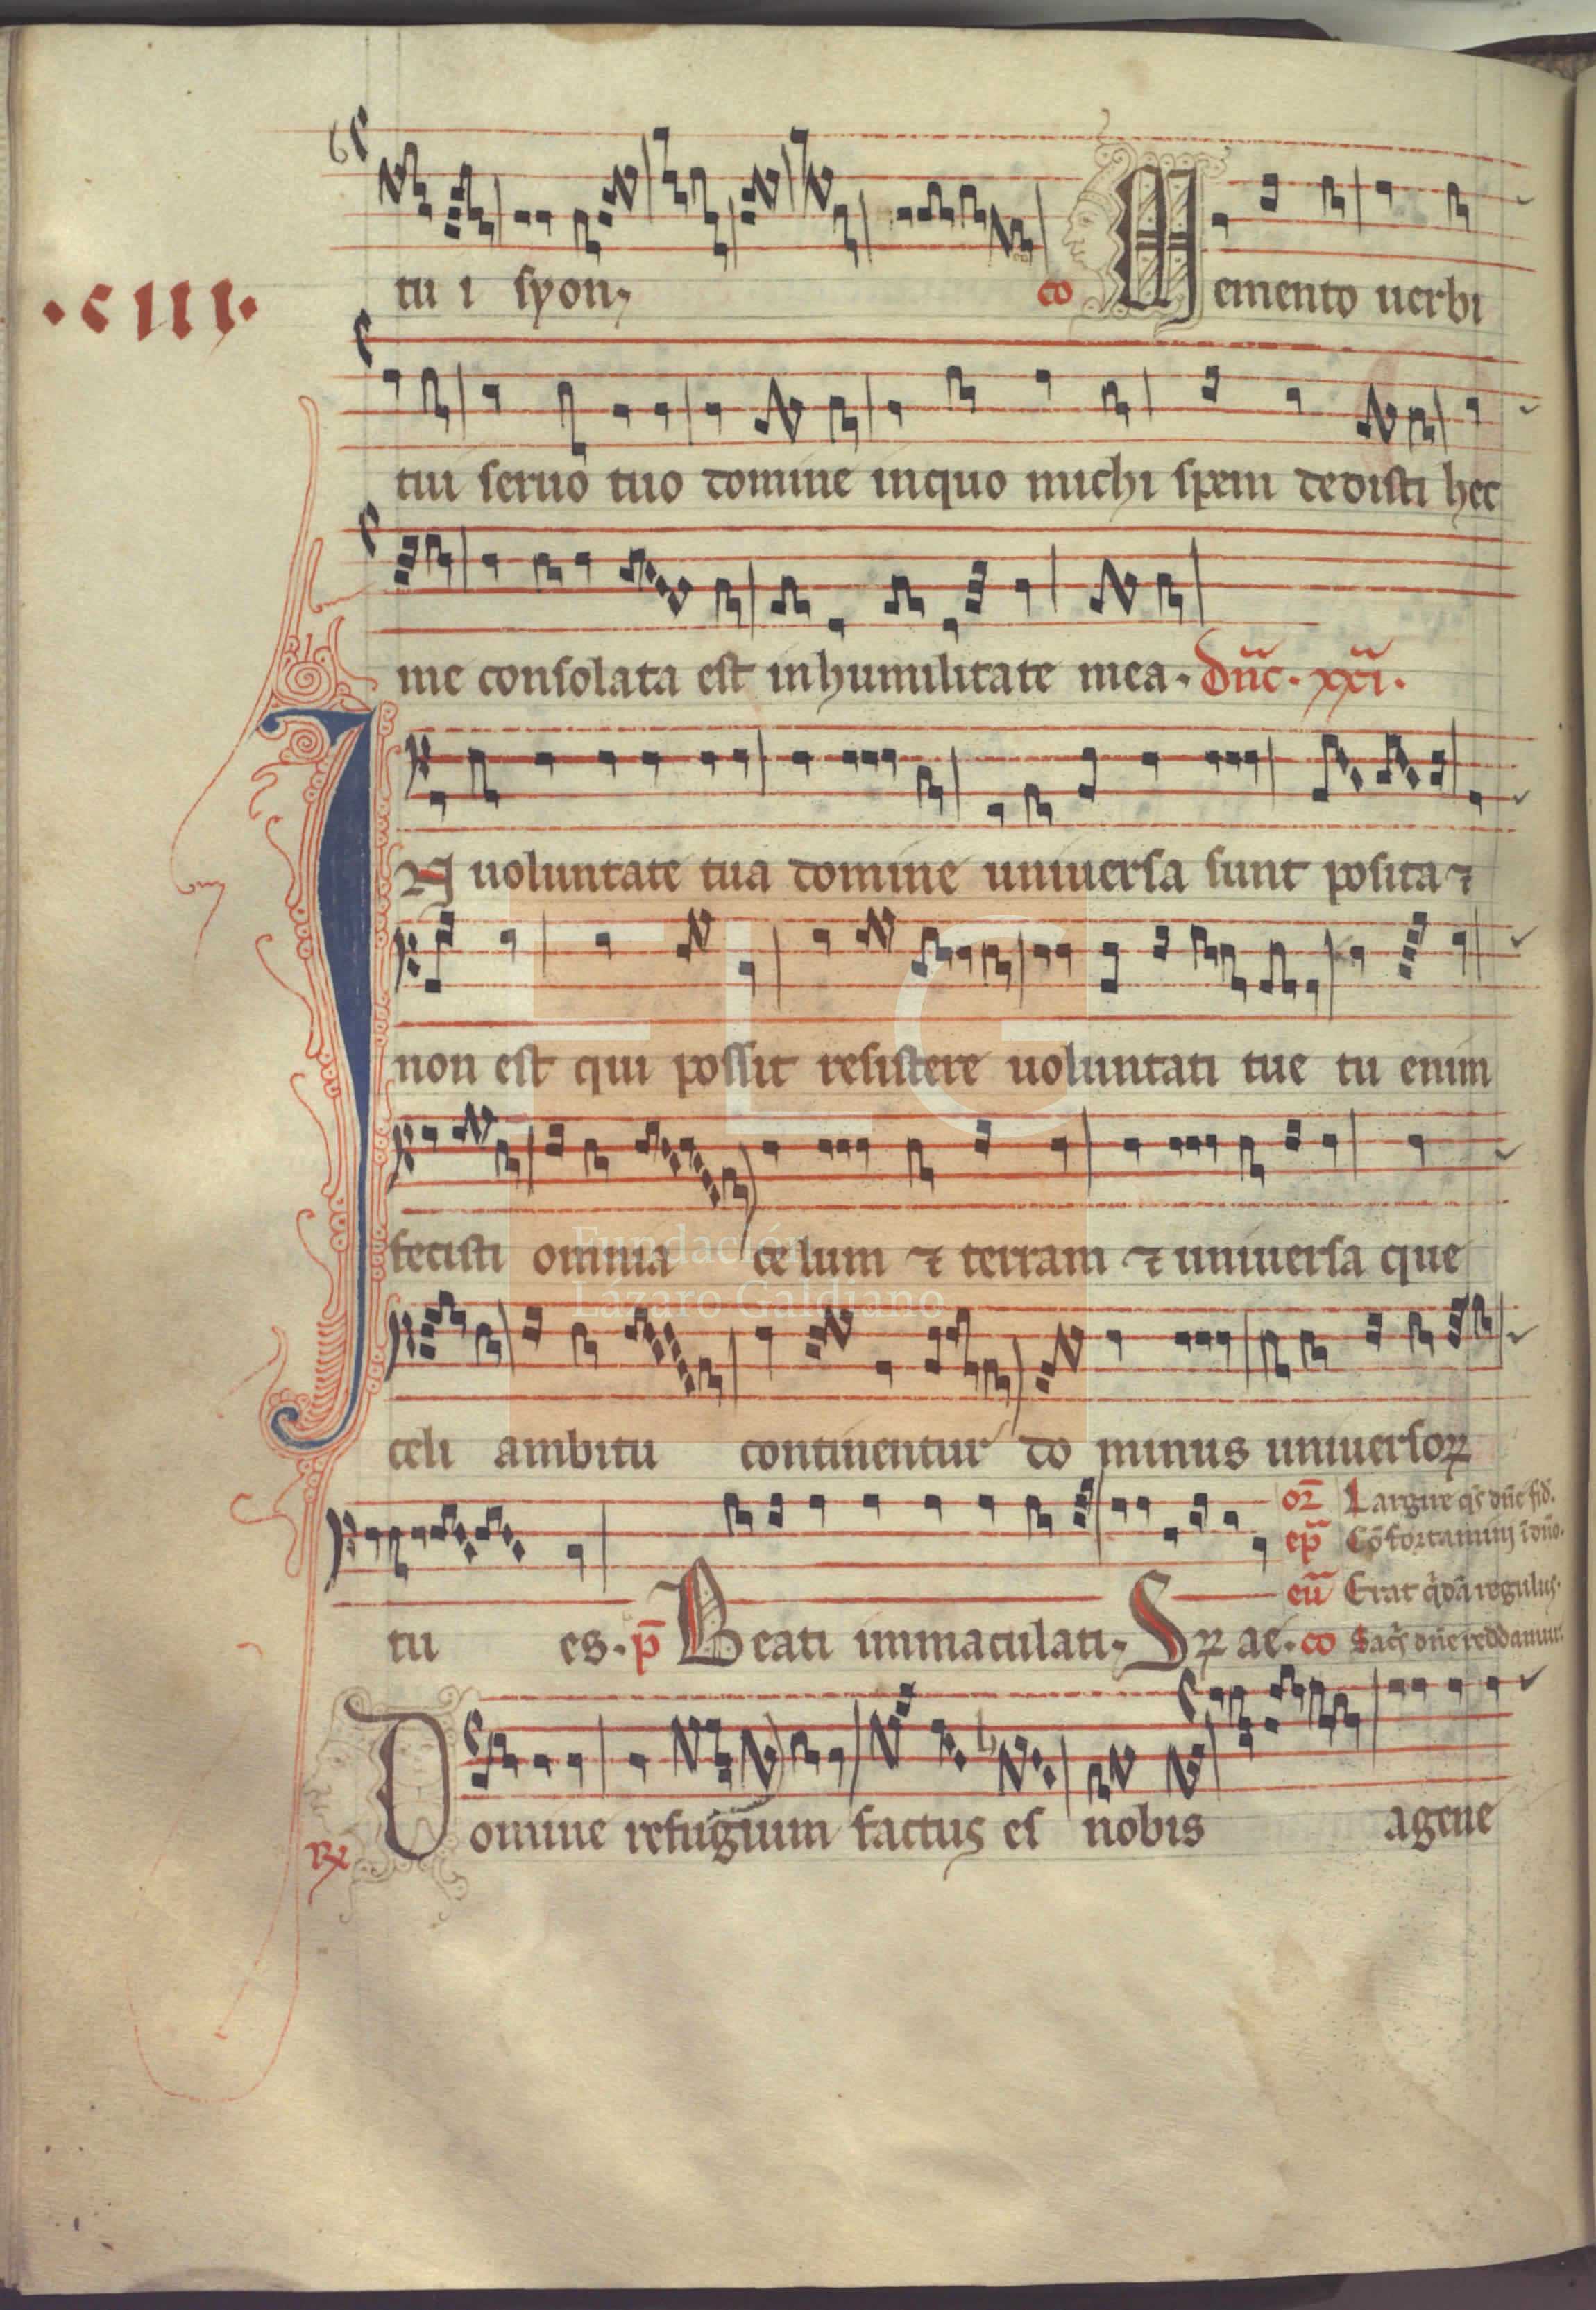 tu i syon,
co Memento uerbi
.CIII.
tui seruo tuo domine inquo michi spem dedisti hec
me consolata est in humilitate mea. dn̄c. xxi.
IN uoluntate tua domine uniuersa sunt posita ⁊
non est qui possit resistere uoluntati tue tu enim
fecisti omnia celum ⁊ terram ⁊ uniuersa que
Fundación
Lázaro Galdiano
celi ambitu continentur do minus uniuersoꝝ
or̄ Largire qs̄ dn̄e fid.
ep̄ Cōfortamini ī dn̄o.
eū Erat q̄dā regulus.
tu es. p̄ Beati immaculati. Sꝝ ae. co Sacͥs dn̄e reddamur.
R℣ Domine refugium factus es nobis agene
FLG